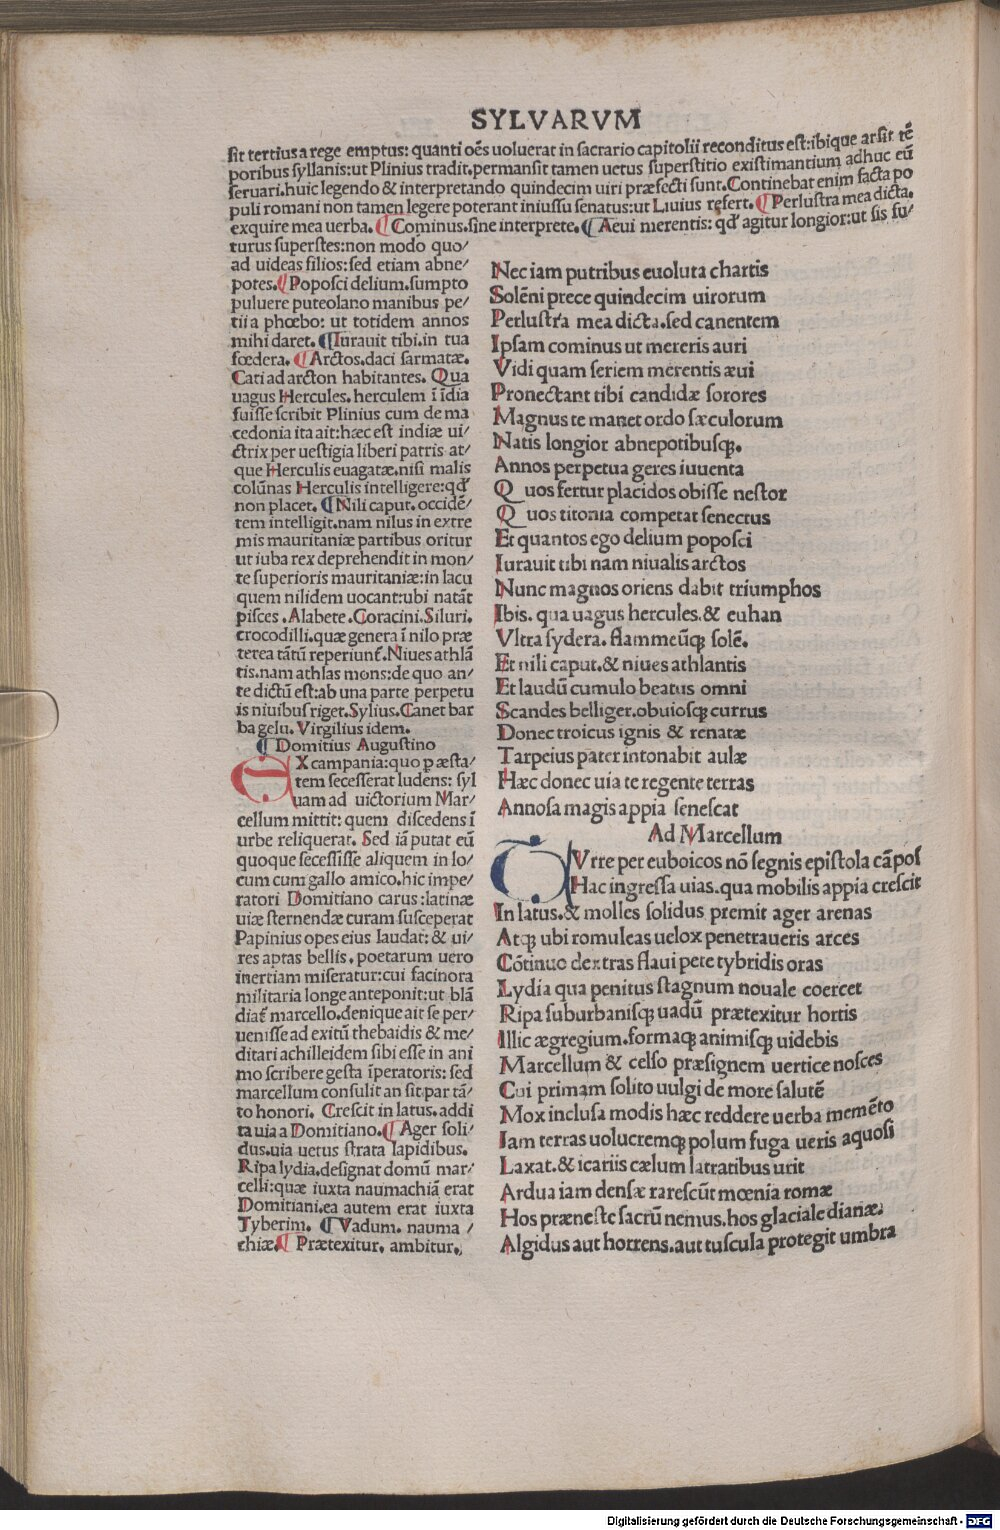 SYLVARVM
sit tertius a rege emptus: quanti oẽs uoluerat in sacrario capitolii reconditus est:ibique arsit tẽ
poribus syllanis:ut Plinius tradit.permansit tamen uetus superstitio existimantium adhuc eũ
seruari.huic legendo & interpretando quindecim uiri præfecti sunt.Continebat enim facta po
puli romani non tamen legere poterant iniussu senatus:ut Liuius refert.¶Perlustra mea dicta.
exquire mea uerba.¶Cominus.sine interprete.¶Aeui merentis: qď agitur longior:ut sis fu/
turus superstes:non modo quo/
ad uideas filios:sed etiam abne/
potes.¶Poposci delium.sumpto
puluere puteolano manibus pe/
tii a phœbo: ut totidem annos
mihi daret.¶Iurauit tibi.in tua
fœdera.¶Arctos.daci sarmatæ.
Cati ad arcton habitantes. Qua
uagus Hercules.herculem ĩ ĩdia
fuisse scribit Plinius cum de ma
cedonia ita ait:hæc est indiæ ui/
ctrix per uestigia liberi patris at/
que Herculis euagatæ.nisi malis
colũnas Herculis intelligere:qď
non placet.¶Nili caput.occidẽ/
tem intelligit.nam nilus in extre
mis mauritaniæ partibus oritur
ut iuba rex deprehendit in mon/
te superioris mauritaniæ:in lacu
quem nilidem uocant:ubi natãt
pisces.Alabete.Coracini.Siluri.
crocodilli.quæ genera ĩ nilo præ
terea tãtũ reperiunt̃.Niues athlã
tis.nam athlas mons:de quo an/
te dictũ est:ab una parte perpetu
is niuibus riget.Sylius.Canet bar
ba gelu. Virgilius idem.
¶Domitius Augustino
EX campania:quo p æsta/
tem secesserat ludens: syl
uam ad uictorium Mar/
cellum mittit: quem discedens ĩ
urbe reliquerat. Sed iã putat eũ
quoque secessisse aliquem in lo/
cum cum gallo amico.hic impe/
ratori Domitiano carus:latinæ
uiæ sternendæ curam susceperat
Papinius opes eius laudat: & ui/
res aptas bellis. poetarum uero
inertiam miseratur:cui facinora
militaria longe anteponit:ut blã
diat̃ marcello.denique ait se per/
uenisse ad exitũ thebaidis & me/
ditari achilleidem sibi esse in ani
mo scribere gesta ĩperatoris: sed
marcellum consulit an sit par tã/
to honori. Crescit in latus.addi
ta uia a Domitiano.¶Ager soli/
dus.uia uetus strata lapidibus.
Ripa lydia.designat domũ mar/
celli:quæ iuxta naumachiã erat
Domitiani.ea autem erat iuxta
Tyberim. ¶Vadum. nauma /
chiæ.¶ Prætexitur. ambitur.
Nec iam putribus euoluta chartis
Solẽni prece quindecim uirorum
Perlustra mea dicta.sed canentem
Ipsam cominus ut mereris auri
Vidi quam seriem merentis æui
Pronectant tibi candidæ sorores
Magnus te manet ordo sæculorum
Natis longior abnepotibusq̃.
Annos perpetua geres iuuenta
Quos fertur placidos obisse nestor
Quos titonia computat senectus
Et quantos ego delium poposci
Iurauit tibi nam niualis arctos
Nunc magnos oriens dabit triumphos
Ibis. qua uagus hercules.& euhan
Vltra sydera. flammeũq̃ solẽ.
Et nili caput.& niues athlantis
Et laudũ cumulo beatus omni
Scandes belliger.obuiosq̃ currus
Donec troicus ignis & renatæ
Tarpeius pater intonabit aulæ
Hæc donec uia te regente terras
Annosa magis appia senescat
Ad Marcellum
CVrre per euboicos nõ segnis epistola cãpos
Hac ingressa uias.qua mobilis appia crescit
In latus.& molles solidus premit ager arenas
Atq̃ ubi romuleas uelox penetraueris arces
Cõtinuo dextras flaui pete tybridis oras
Lydia qua penitus stagnum nouale coercet
Ripa suburbanisq̃ uadũ prætexitur hortis
Illic ægregium.formaq̃ animisq̃ uidebis
Marcellum & celso præsignem uertice nosces
Cui primam solito uulgi de more salutẽ
Mox inclusa modis hæc reddere uerba memẽto
Iam terras uolucremq̃ polum fuga ueris aquosi
Laxat.& icariis cælum latratibus urit
Ardua iam densæ rarescũt mœnia romæ
Hos præneste sacrũ nemus.hos glaciale dianæ.
Algidus aut horrens.aut tuscula protegit umbra
Digitalisierung gefördert durch die Deutsche Forschungsgemeinschaft - DFG